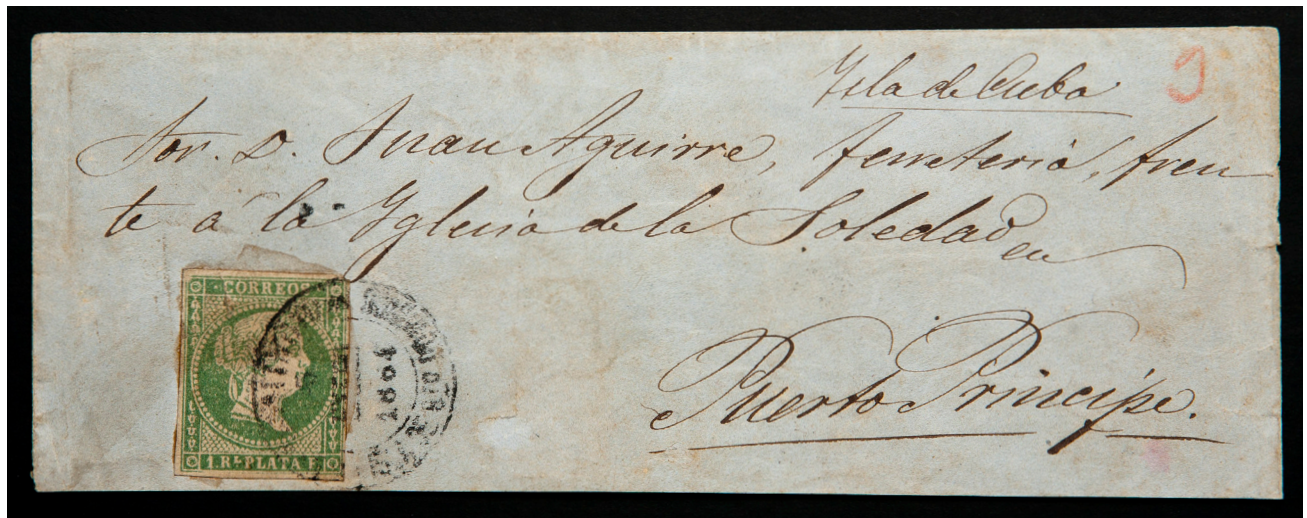 Isla de Cuba
Sor. D. Juan Aguirre, ferreteria, fren
te á la Yglesia de la Soledad en
Puerto Principe.
CORREOS
1. Rl. PLATA F.